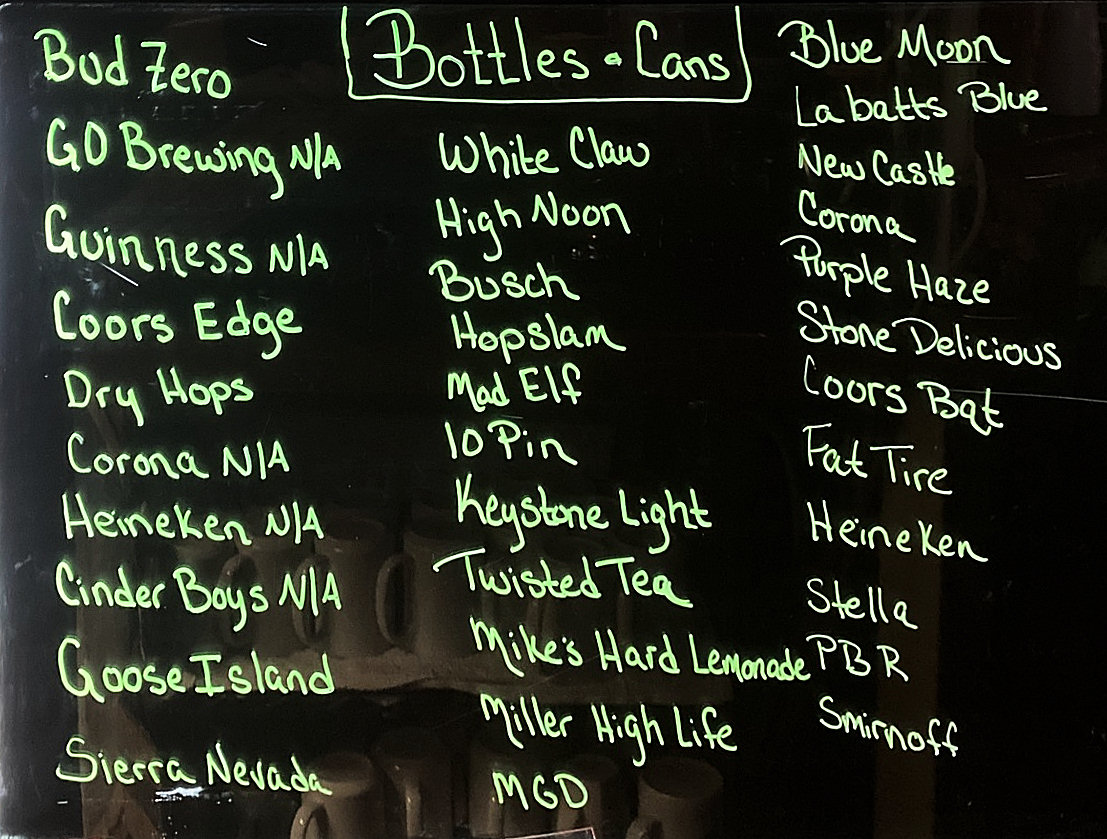 Bottles & Cans
Bud Zero
GO Brewing N/A
Guinness N/A
Coors Edge
Dry Hops
Corona N/A
Heineken N/A
Cinder Boys N/A
Goose Island
Sierra Nevada
White Claw
High Noon
Busch
Hopslam
Mad Elf
10 Pin
Keystone Light
Twisted Tea
Mike's Hard Lemonade
Miller High Life
MGD
Blue Moon
Labatts Blue
New Castle
Corona
Purple Haze
Stone Delicious
Coors Bqt
Fat Tire
Heineken
Stella
PBR
Smirnoff